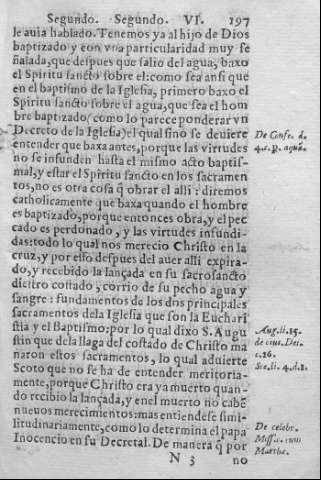 Segundo. Segundo. VI. 197
le auia hablado. Tenemos ya al hijo de Dios
baptizado y con vna particularidad muy se
ñalada, que despues que salio del agua, baxo
el Spiritu sancto sobre el: como sea ansi que
en el baptismo de la Iglesia, primero baxo el
Spiritu sancto sobre el agua, que sea el hom
bre baptizado (como lo parece ponderar vn
Decreto de la Iglesia) el qual sino se deuiere
entender que baxa antes, porque las virtudes
no se infunden hasta el mismo acto baptis-
mal, y estar el Spiritu sancto en los sacramen
tos, no es otra cosa q̃ obrar el alli: diremos
catholicamente que baxa quando el hombre
es baptizado, porque entonces obra, y el pec
cado es perdonado, y las virtudes infundi-
das: todo lo qual nos merecio Christo en la
cruz, y por esso despues del auer alli expira-
do, y recebido la lançada en su sacrosancto
diestro costado, corrio de su pecho agua y
sangre: fundamentos de los dos principales
sacramentos dela Iglesia que son la Euchari
stia y el Baptismo: por lo qual dixo S. Augu
stin que dela llaga del costado de Christo ma
naron estos sacramentos, lo qual aduierte
Scoto que no se ha de entender meritoria-
mente, porque Christo era ya muerto quan-
do recibio la lançada, y enel muerto no cabẽ
nueuos merecimientos: mas entiendese simi-
litudinariamente, como lo determina el papa
Inocencio en su Decretal. De manera q̃ por
N 3 no
De Conse. d.
4. c. p. aquã.
Aug. li. 15.
de ciui. Dei.
c. 26.
Sco. li. 4. d. 8.
De celebr.
Miss. c. cum
Marthe.